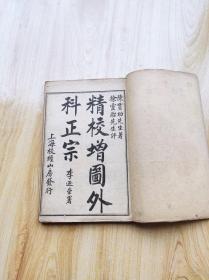 陳實功先生著
徐靈胎先生評
精校增圖外
科正宗
李逊臺署
上海校經山房發行